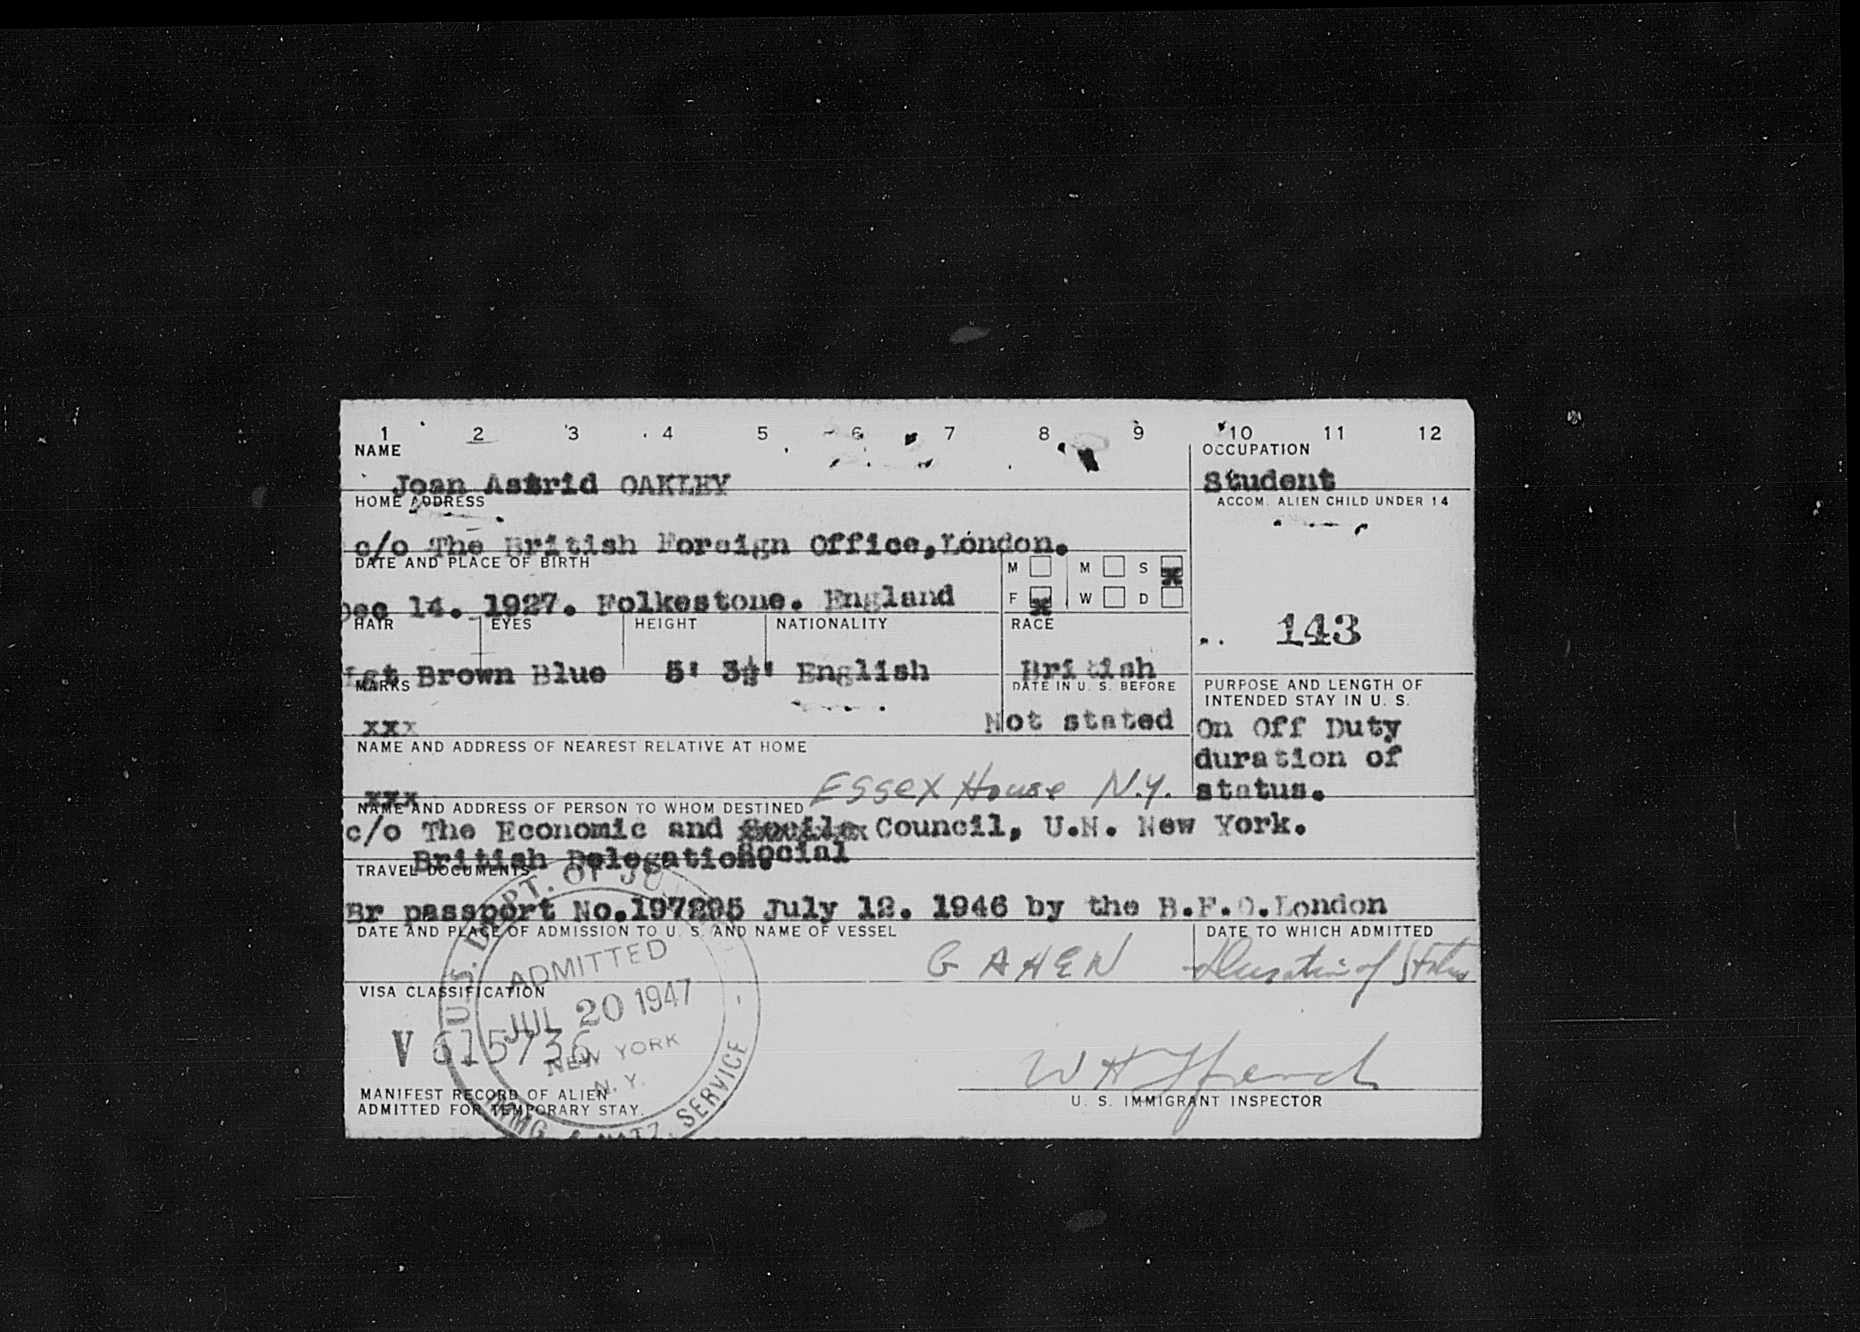 1 2 3 4 5 6 7 8 9 10 11 12
NAME
Joan Astrid OAKLEY
OCCUPATION
Student
HOME ADDRESS
ACCOM. ALIEN CHILD UNDER 14
c/o The British Foreign Office,London.
DATE AND PLACE OF BIRTH
M M S x
Dec 14. 1927. Folkestone. England
F x W D
143
HAIR EYES HEIGHT NATIONALITY RACE
Lgt Brown Blue 5' 3½' English British
MARKS
DATE IN U. S. BEFORE
PURPOSE AND LENGTH OF
INTENDED STAY IN U. S.
xxx Not stated
On Off Duty
duration of
status.
NAME AND ADDRESS OF NEAREST RELATIVE AT HOME
xxx Essex House N.Y.
NAME AND ADDRESS OF PERSON TO WHOM DESTINED
c/o The Economic and Council, U.N. New York.
British Delegation. Social
TRAVEL DOCUMENTS
Br passport No.197295 July 12. 1946 by the B.F.O.London
DATE AND PLACE OF ADMISSION TO U. S. AND NAME OF VESSEL
DATE TO WHICH ADMITTED
G AHEN Duration of Status
VISA CLASSIFICATION
V 615736
U.S. DEPT. OF JU
ADMITTED
JUL 20 1947
NEW YORK
N.Y.
IMMG. & NATZ. SERVICE
MANIFEST RECORD OF ALIEN
ADMITTED FOR TEMPORARY STAY.
W H Ffrench
U. S. IMMIGRANT INSPECTOR